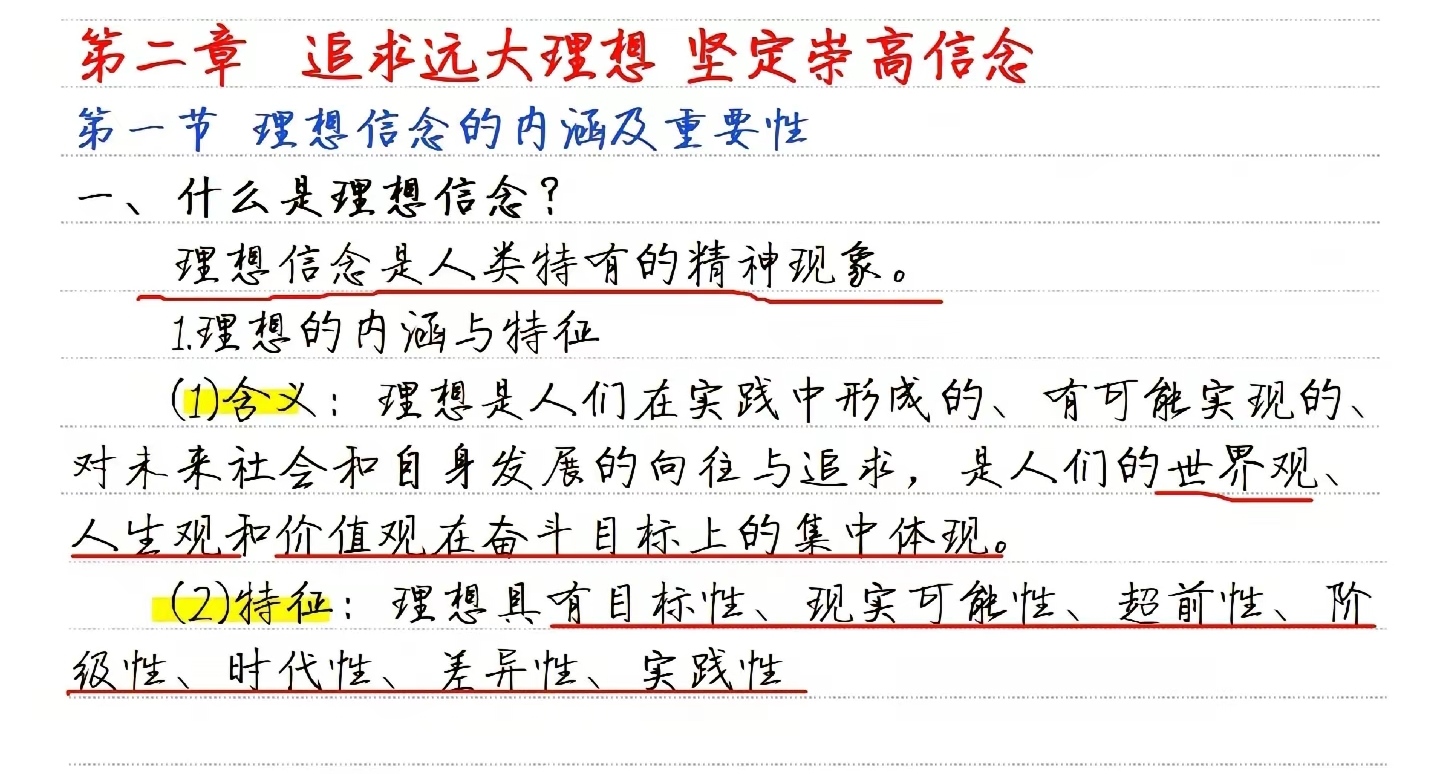 第二章 追求远大理想 坚定崇高信念
第一节 理想信念的内涵及重要性
一、什么是理想信念?
理想信念是人类特有的精神现象。
1.理想的内涵与特征
(1)含义:理想是人们在实践中形成的、有可能实现的、
对未来社会和自身发展的向往与追求,是人们的世界观、
人生观和价值观在奋斗目标上的集中体现。
(2)特征:理想具有目标性、现实可能性、超前性、阶
级性、时代性、差异性、实践性